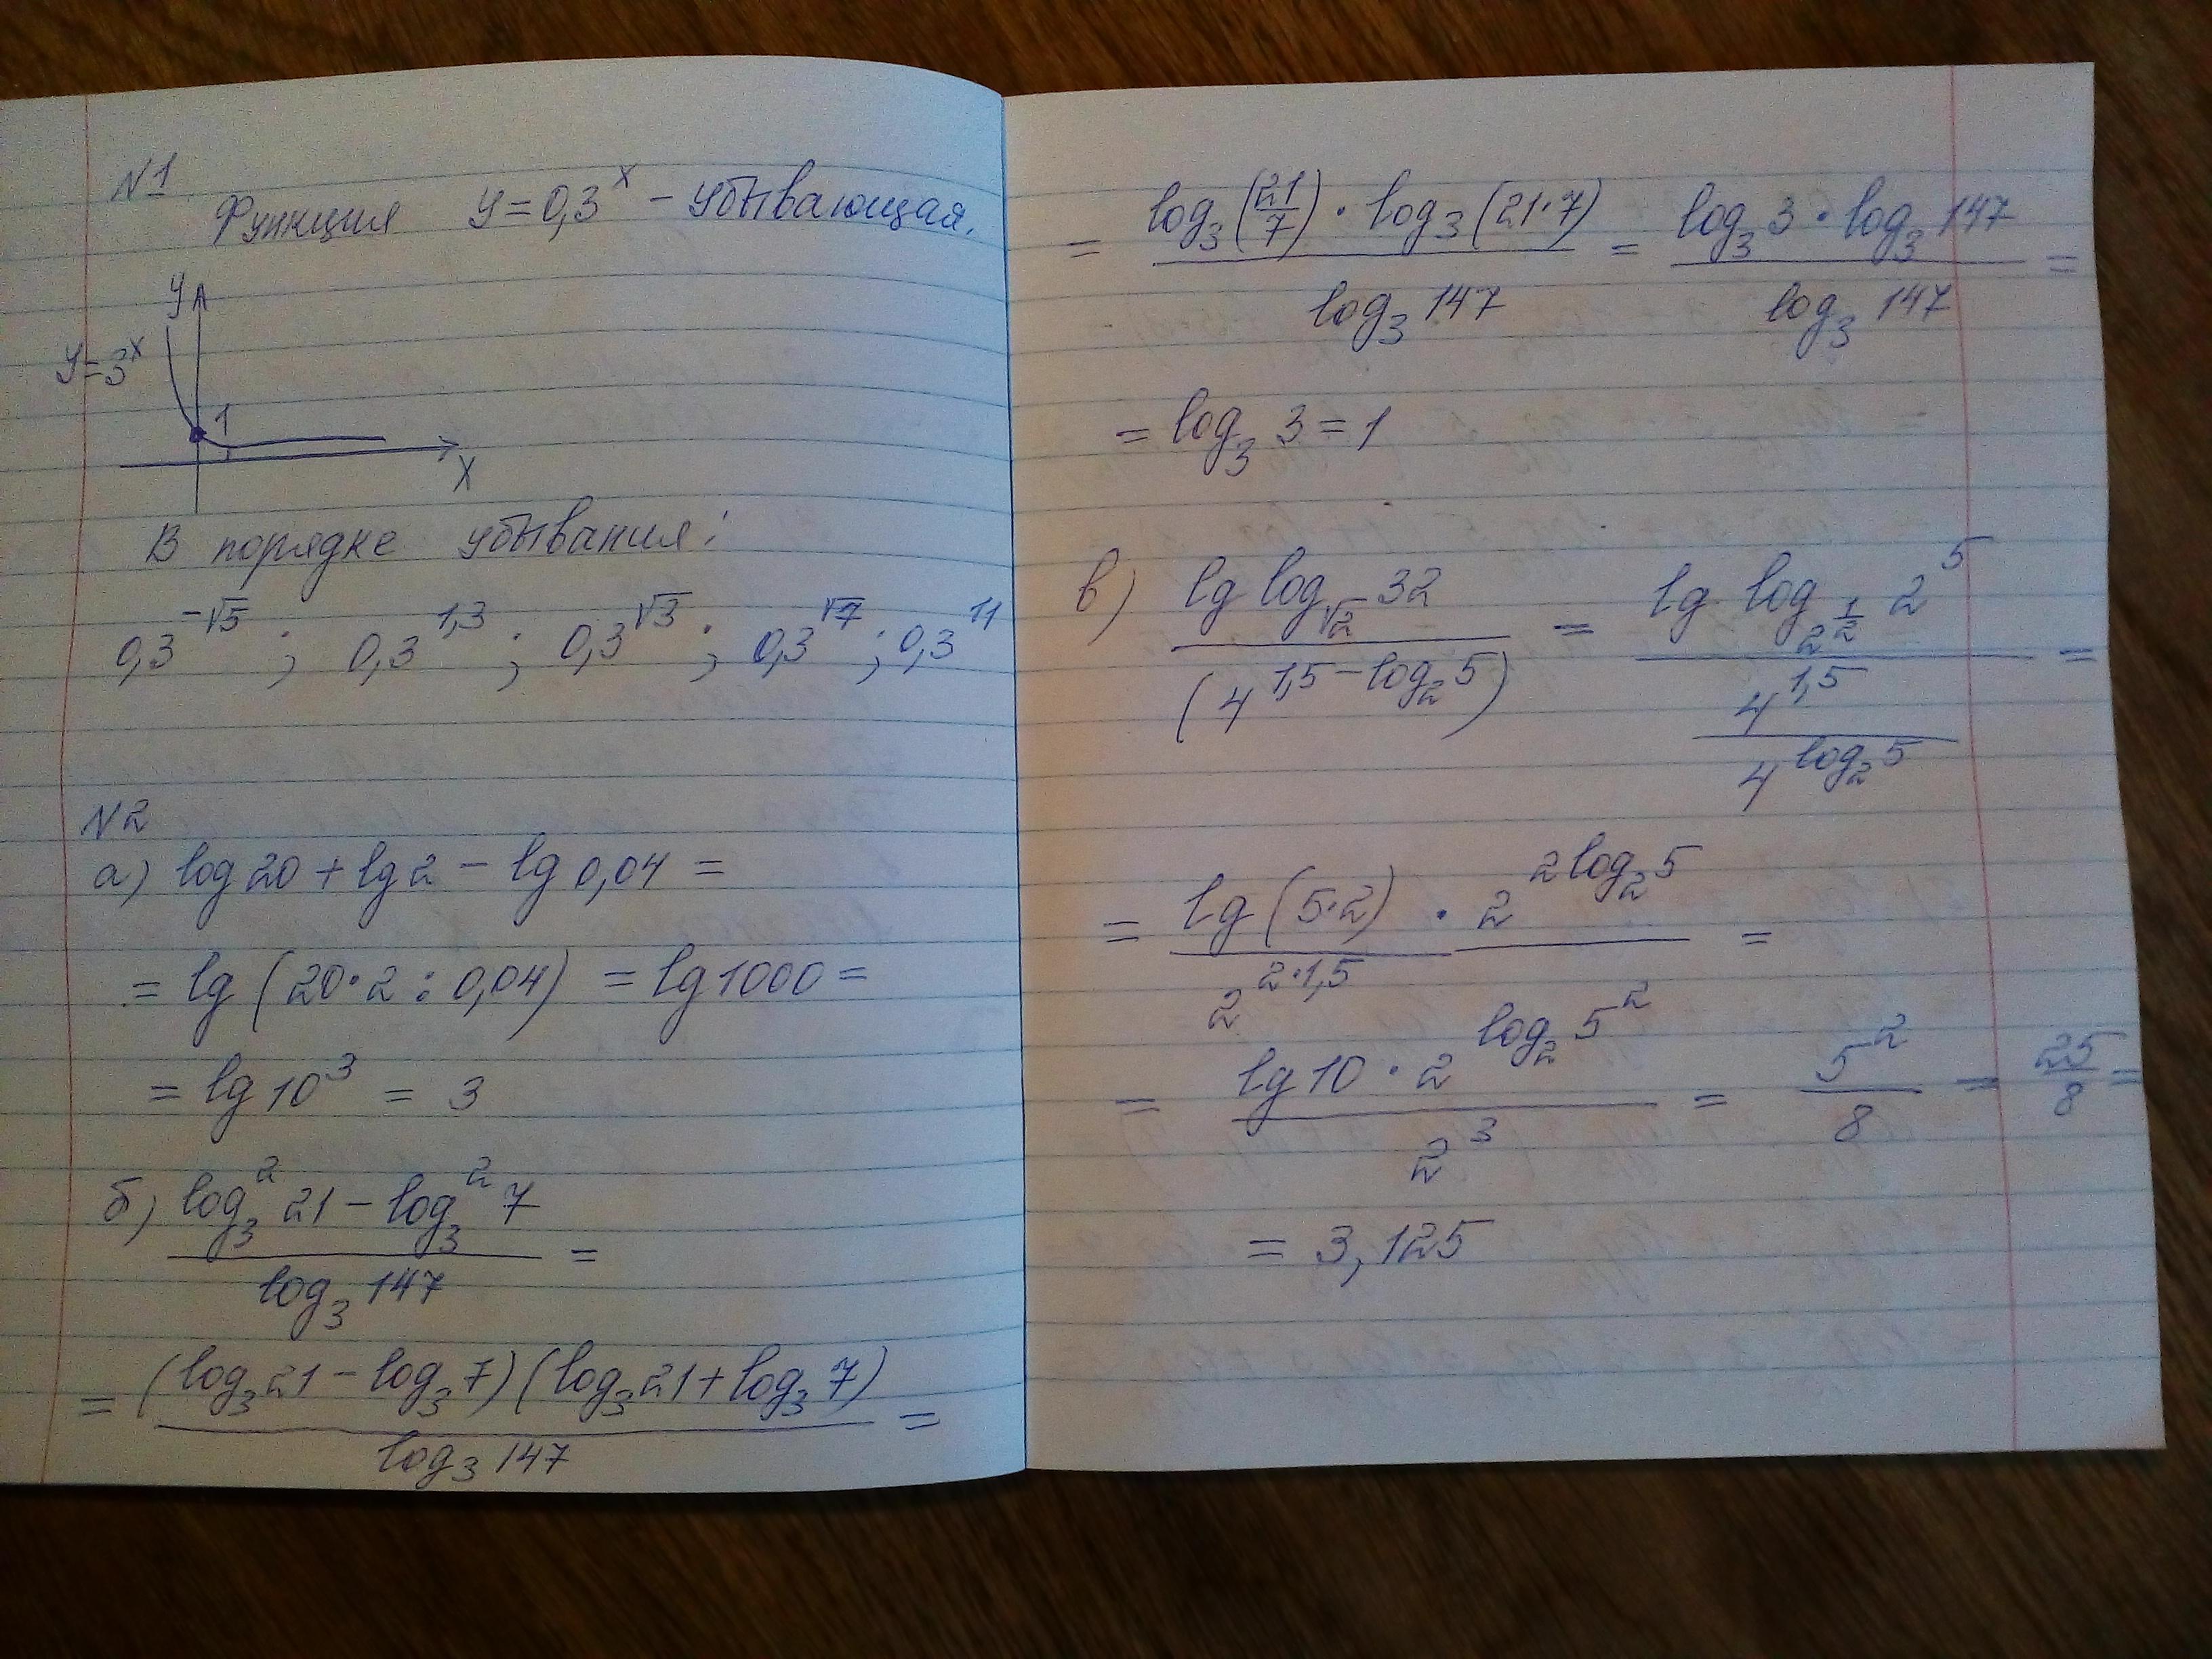 N1
Функция y=0,3^x - убывающая.
y
y=3^x
1
x
В порядке убывания:
0,3^{-√5} ; 0,3^{1,3} ; 0,3^{√3} ; 0,3^{√7} ; 0,3^{11}
N2
а) log 20 + lg 2 - lg 0,04 =
= lg (20·2 : 0,04) = lg 1000 =
= lg 10^3 = 3
б) (log_3^2 21 - log_3^2 7) / (log_3 147) =
= ((log_3 21 - log_3 7)(log_3 21 + log_3 7)) / (log_3 147) =
= (log_3 (21/7) · log_3 (21·7)) / (log_3 147) = (log_3 3 · log_3 147) / (log_3 147) =
= log_3 3 = 1
в) (lg log_{√2} 32) / (4^{1,5 - log_2 5}) = (lg log_{2^{1/2}} 2^5) / (4^{1,5} / 4^{log_2 5}) =
= (lg (5·2) · 2^{2 log_2 5}) / (2^{2·1,5}) =
= (lg 10 · 2^{log_2 5^2}) / (2^3) = 5^2 / 8 = 25/8 =
= 3,125